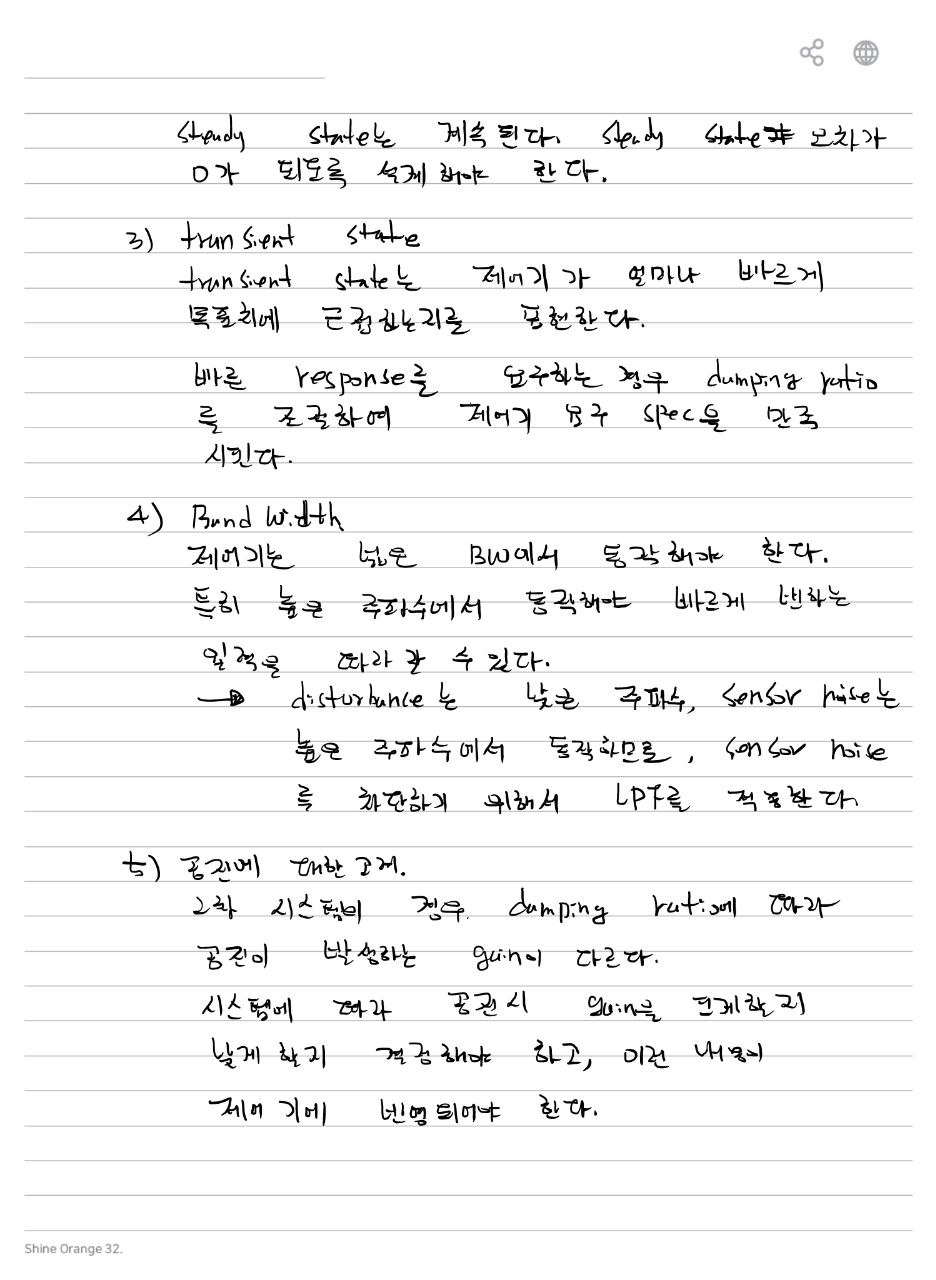 steady state는 계속 된다. steady state 오차가
0가 되도록 설계해야 한다.
3) transient state
transient state는 제어기가 얼마나 빠르게
목표치에 근접하는지를 표현한다.
빠른 response를 요구하는 경우 damping ratio
를 조절하여 제어기 요구 spec을 만족
시킨다.
4) Band Width
제어기는 넓은 BW에서 동작해야 한다.
특히 높은 주파수에서 동작해야 빠르게 변하는
입력을 따라 갈 수 있다.
→ disturbance는 낮은 주파수, sensor noise는
높은 주파수에서 동작하므로, sensor noise
를 차단하기 위해서 LPF를 적용한다.
5) 공진에 대한 고려.
2차 시스템의 경우 damping ratio에 따라
공진이 발생하는 gain이 다르다.
시스템에 따라 공진시 gain을 크게할지
낮게 할지 결정해야 하고, 이런 내용이
제어기에 반영되어야 한다.
Shine Orange 32.